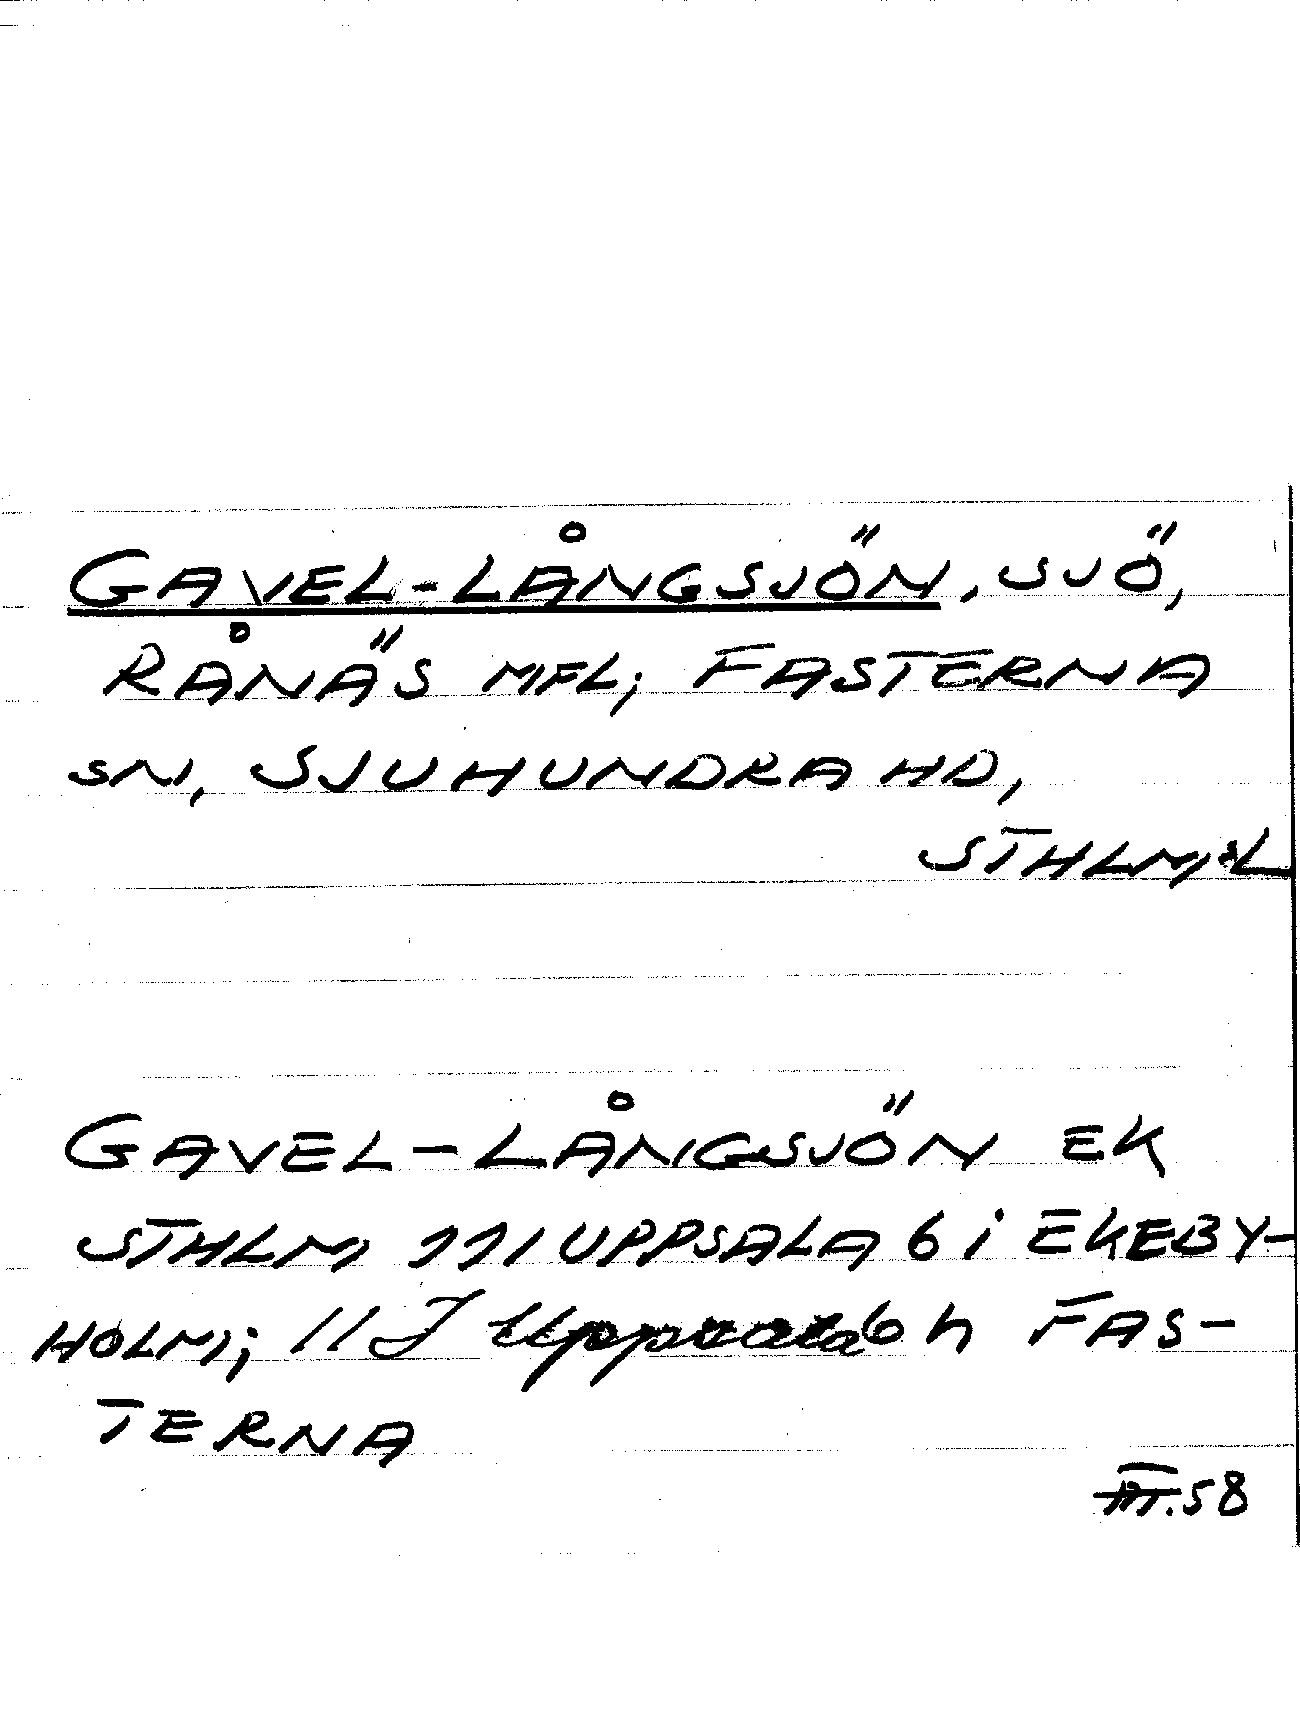 GAVEL-LÅNGSJÖN, SJÖ,
RÅNÄS MFL; FASTERNA
SN, SJUHUNDRA HD,
STHLM:S L
GAVEL-LÅNGSJÖN EK
STHLM 111 UPPSALA 6 i EKEBY-
HOLM; 11 I Uppsala 6 h FAS-
TERNA
.58